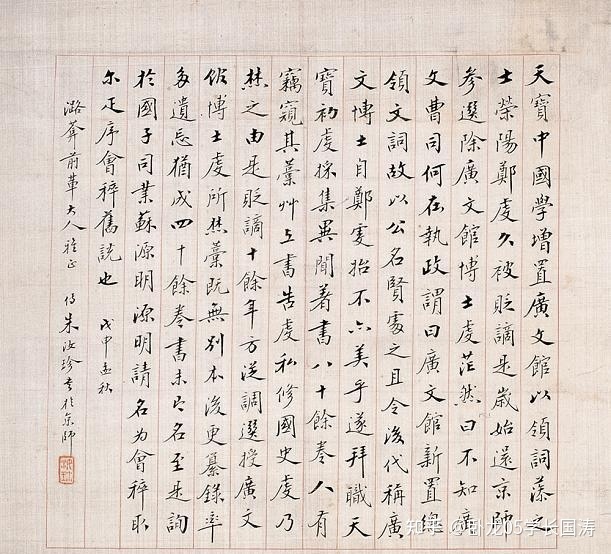 天寶中國學增置廣文館以領詞藻之
士滎陽鄭虔久被貶謫是歲始還京師
參選除廣文館博士虔茫然曰不知廣
文曹司何在執政謂曰廣文館新置總
領文詞故以公名賢處之且令後代稱廣
文博士自鄭虔始不亦美乎遂拜職天
寶初虔採集異聞著書八十餘卷人有
竊窺其藁草上書告虔私修國史虔乃
焚之由是貶謫十餘年方從調選授廣文
館博士虔所焚藁既無別本後更纂錄率
多遺忘猶成四十餘卷書未有名至是詢
於國子司業蘇源明源明請名為會稡取
尒疋序會稡舊説也 戊申孟秋
潞葊前輩大人雅正
侍朱汝珍書於京師
知乎 @卧龙05学长国涛